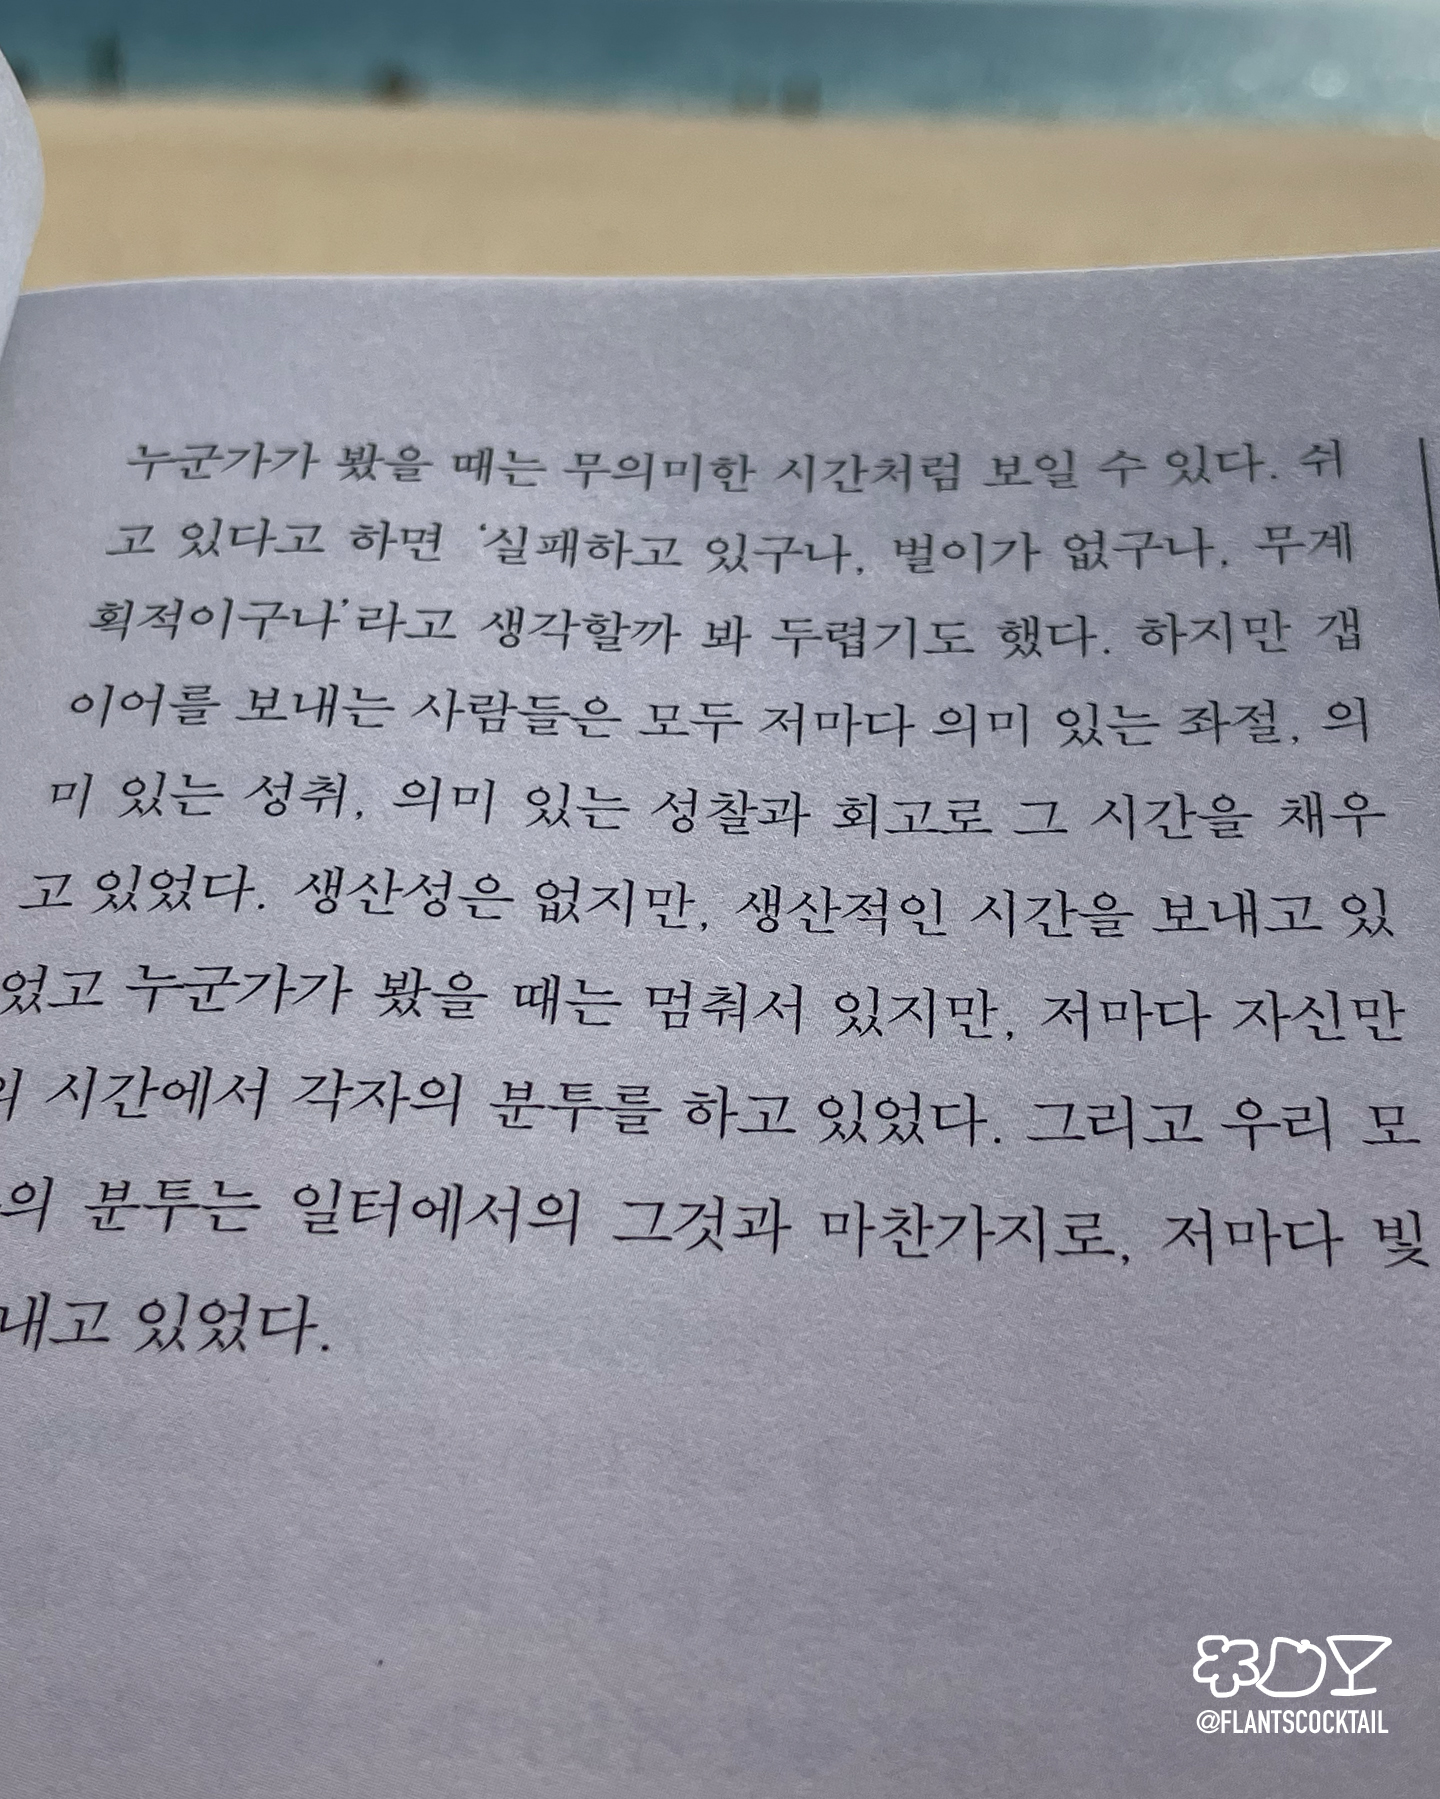 누군가가 봤을 때는 무의미한 시간처럼 보일 수 있다. 쉬
고 있다고 하면 ‘실패하고 있구나, 벌이가 없구나, 무계
획적이구나’라고 생각할까 봐 두렵기도 했다. 하지만 갭
이어를 보내는 사람들은 모두 저마다 의미 있는 좌절, 의
미 있는 성취, 의미 있는 성찰과 회고로 그 시간을 채우
고 있었다. 생산성은 없지만, 생산적인 시간을 보내고 있
었고 누군가가 봤을 때는 멈춰서 있지만, 저마다 자신만
의 시간에서 각자의 분투를 하고 있었다. 그리고 우리 모
의 분투는 일터에서의 그것과 마찬가지로, 저마다 빛
내고 있었다.
@FLANTSCOCKTAIL